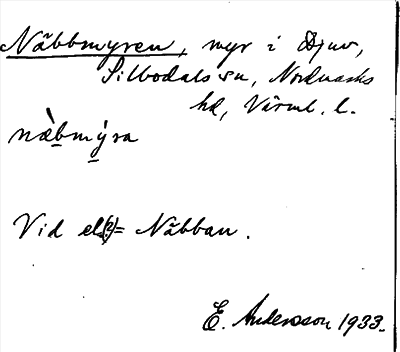 Näbbmyren, myr i Djuv,
Silbodals sn, Nordmarks
hd, Värml. l.
næ̀bmýra
Vid el. (?) = Näbban.
E. Andersson 1933.